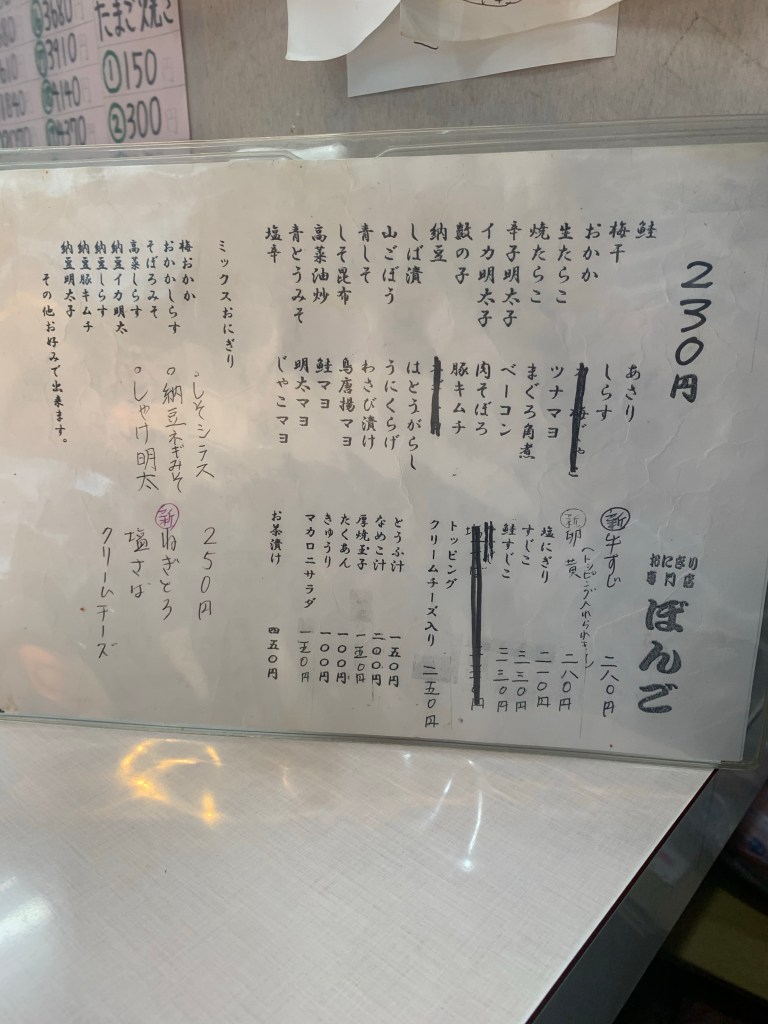 3680円
3910
4140
4370
610
1840
たまご焼き
①150
②300
230円
鮭
梅干
おかか
生たらこ
焼たらこ
辛子明太子
イカ明太子
数の子
納豆
しば漬
山ごぼう
青しそ
しそ昆布
高菜油炒
青とうみそ
塩辛
あさり
しらす
ツナマヨ
まぐろ角煮
ベーコン
肉そぼろ
豚キムチ
はとうがらし
うにくらげ
わさび漬け
鳥唐揚マヨ
鮭マヨ
明太マヨ
じゃこマヨ
おにぎり専門店
ぼんご
新牛すじ 二八〇円
新卵黄 二八〇円
(トッピング入れられません)
塩にぎり 二一〇円
すじこ 三三〇円
鮭すじこ 三三〇円
トッピング
クリームチーズ入り 二五〇円
とうふ汁 一五〇円
なめこ汁 二〇〇円
厚焼玉子 一五〇円
たくあん 一〇〇円
きゅうり 一〇〇円
マカロニサラダ 一五〇円
お茶漬け 四五〇円
ミックスおにぎり
梅おかか
おかかしらす
そぼろみそ
高菜しらす
納豆イカ明太
納豆しらす
納豆豚キムチ
納豆明太子
その他お好みで出来ます。
。しそシラス
。納豆ネギみそ
。しゃけ明太
250円
新ねぎとろ
塩さば
クリームチーズ